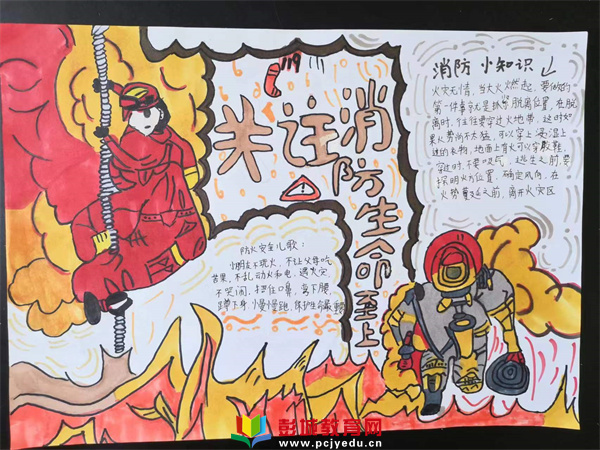 119
关注消防生命至上
消防小知识
火灾无情,当大火燃起,要做的
第一件事就是抓紧脱离位置,在脱
离时,往往要穿过火地带,这时如
果火势尚不太猛,可以穿上浸湿
的衣物,
不要吸气,逃生之前要
探明火方位置,确定风向,在
火势蔓延之前,离开火灾区
防火安全儿歌:
小朋友不玩火,不让父母吃
苦果,不乱动火和电,遇火灾
不哭闹,捂住口鼻,弯下腰
蹲下身,慢慢跑,保护生命最重要
彭城教育网
www.pcjyedu.cn